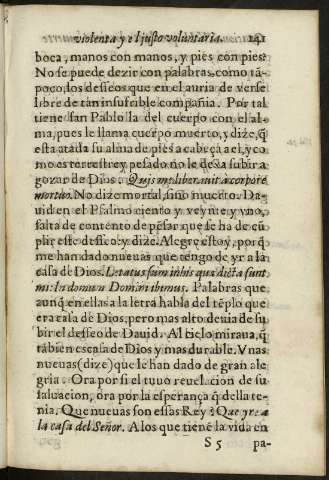 violenta y el justo voluntaria. 141
boca, manos con manos, y pies con pies.
No se puede dezir con palabras, como tã-
poco, los desseos que en el auria de verse
libre de tan insufrible compañia. Por tal
tiene san Pablo la del cuerpo con el al-
ma, pues le llama cuerpo muerto, y dize, q̃
esta atada su alma de pies a cabeça a el, y co
mo es terrestre y pesado no le dexa subir a
gozar de Dios. Quis me liberauit à corpore
mortuo. No dize mortal, sino muerto. Da-
uid en el Psalmo ciento y veynte y vno,
salta de contento de pẽsar que se ha de cũ-
plir este desseo, y dize. Alegre estoy, por q̃
me han dado nueuas que tengo de yr a la
casa de Dios. Letatus sum in his quæ dicta sunt
mi: In domum Domini ibimus. Palabras que
aunq̃ en ellas a la letra habla del tẽplo que
era casa de Dios, pero mas alto deuia de su-
bir el desseo de Dauid. Al cielo miraua, q̃
tãbien es casa de Dios y mas durable. Vnas
nueuas (dize) que le han dado de gran ale
gria. Ora por si el tuuo reuelacion de su
saluacion, ora por la esperança q̃ della te-
nia. Que nueuas son essas Rey? Que yre a
la casa del Señor. A los que tiene la vida en
S 5 pa-